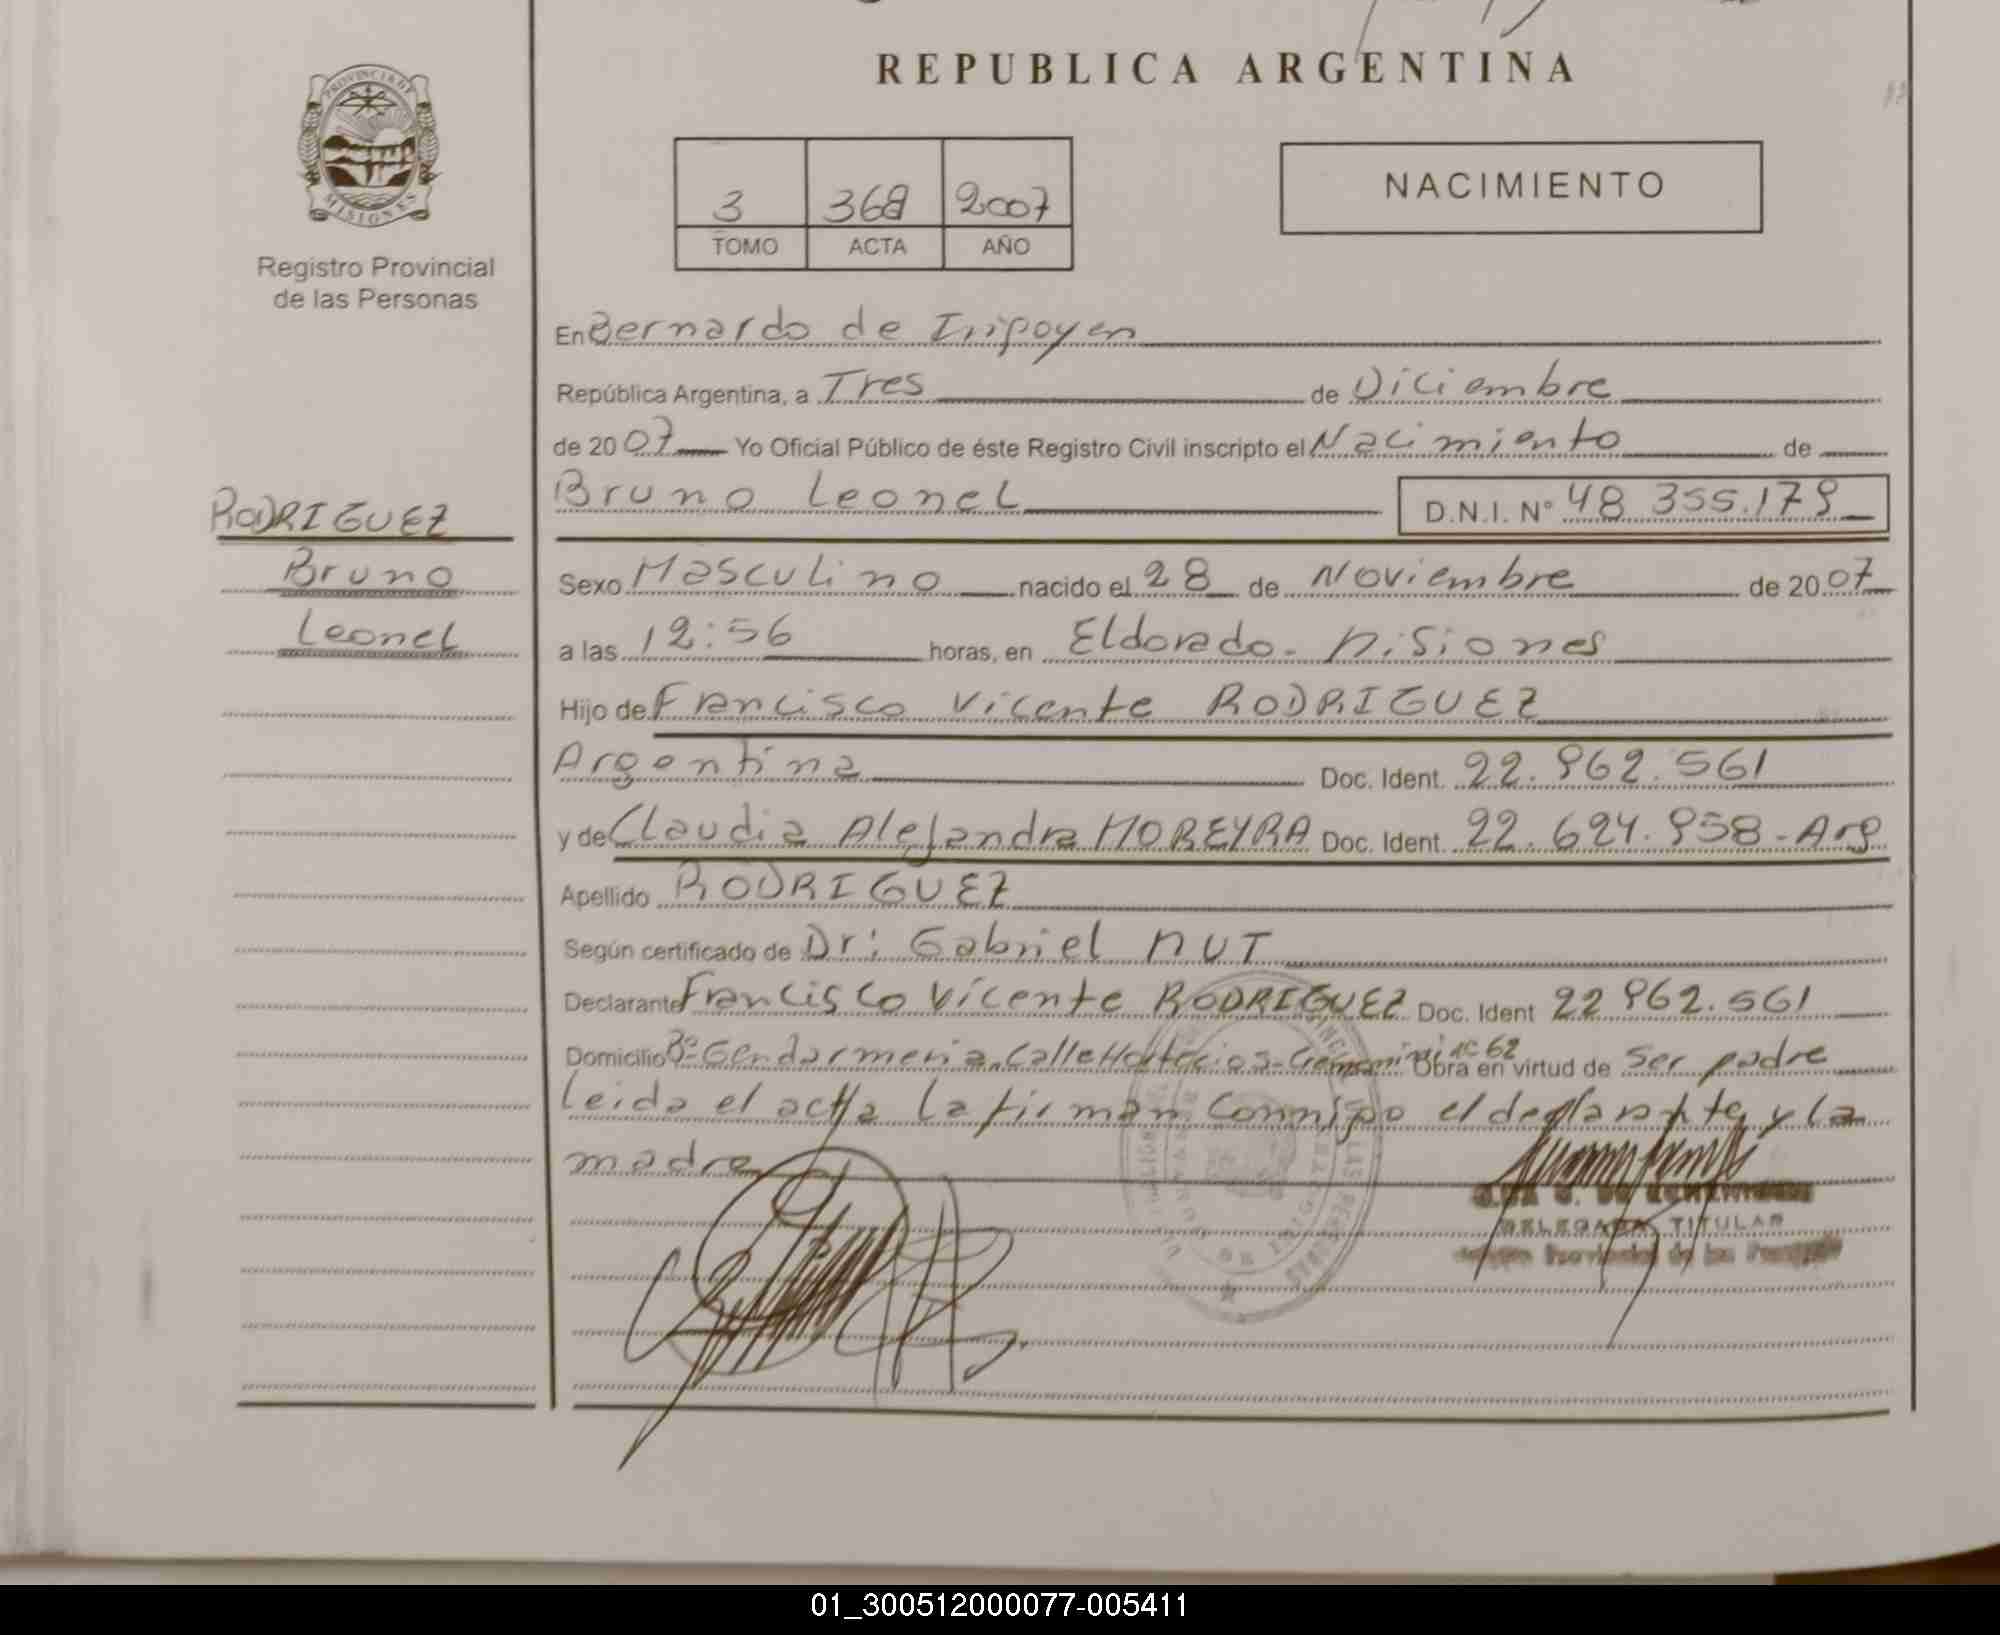 REPUBLICA ARGENTINA
PROVINCIA DE
MISIONES
Registro Provincial
de las Personas
3 368 2007
TOMO ACTA AÑO
NACIMIENTO
En Bernardo de Irigoyen
República Argentina, a Tres de Diciembre
de 2007 Yo Oficial Público de éste Registro Civil inscripto el Nacimiento de
Bruno Leonel D.N.I. Nº 48 355.179
RODRIGUEZ
Bruno
Leonel
Sexo Masculino nacido el 28 de Noviembre de 2007
a las 12:56 horas, en Eldorado - Misiones
Hijo de Francisco Vicente RODRIGUEZ
Argentina Doc. Ident. 22.962.561
y de Claudia Alejandra MOREYRA Doc. Ident. 22.624.958 - Arg
Apellido RODRIGUEZ
Según certificado de Dr: Gabriel NUT
Declarante Francisco Vicente RODRIGUEZ Doc. Ident 22 962.561
Domicilio Bº Gendarmeria, Calle nº 62 Obra en virtud de Ser padre
leida el acta la firman conmigo el declarante y la
madre
DELEGADA TITULAR
Provincial de las Personas
01_300512000077-005411